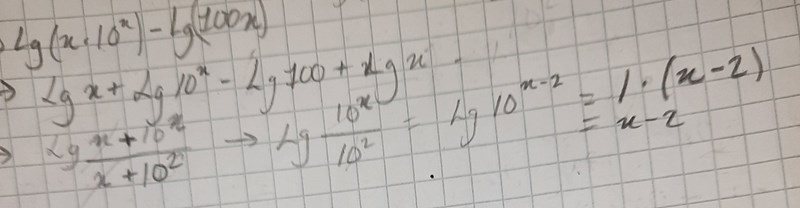 Lg(x·10^x) - Lg(100x)
→ Lg x + Lg 10^x - Lg 100 + Lg x
→ Lg \frac{x+10^x}{x+10^2} → Lg \frac{10^x}{10^2} = Lg 10^{x-2} = 1·(x-2)
= x-2